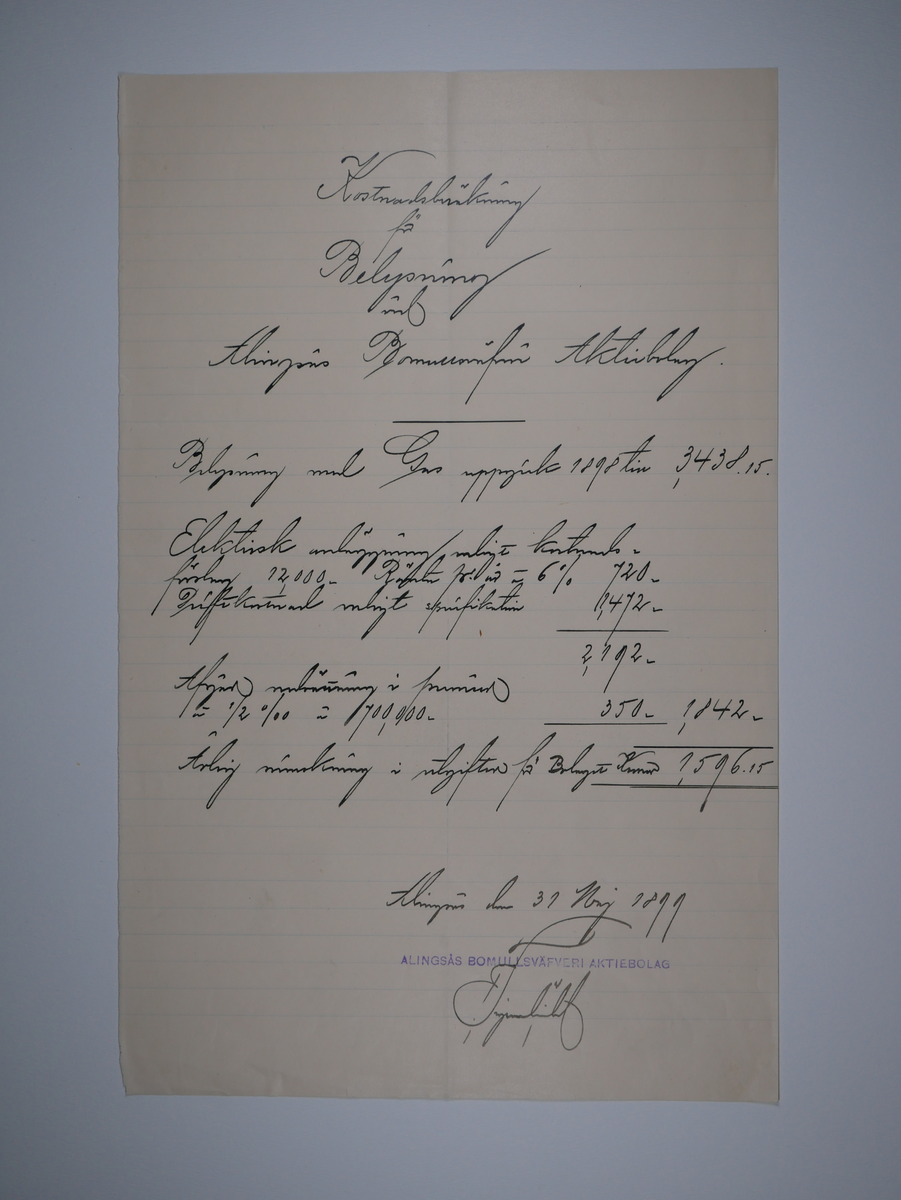 Kostnadsberäkning
för
Belysning
vid
Alingsås Bomullsväfveri Aktiebolag.
Belysning med Gas uppgick 1898 till 3,438.15.
Elektrisk anläggning enligt kostnads-
förslag 12,000- Ränta pr år à 6% 720-
Driftkostnad enligt specifikation 1,472-
2,192-
Afgår i premien
à 1/2 ‰ à 700,900- 350- 1,842-
Årlig minskning i utgifter för Bolaget Kronor 1,596.15
Alingsås den 31 Maj 1899
ALINGSÅS BOMULLSVÄFVERI AKTIEBOLAG